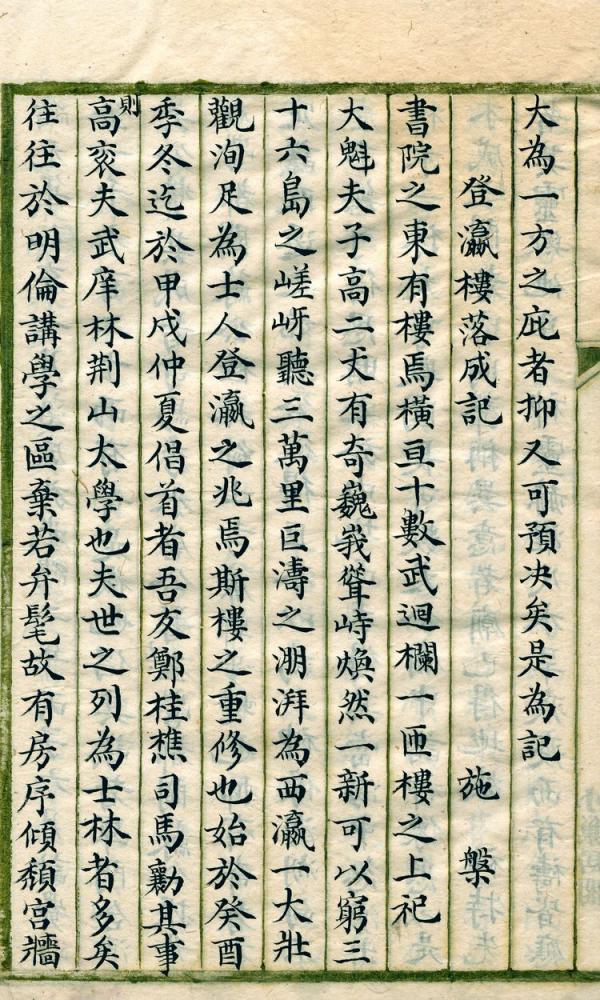 大為一方之庇者抑又可預决矣是為記
登瀛樓落成記 施槃
書院之東有樓焉橫亘十數武迴欄一匝樓之上祀
大魁夫子高二丈有奇巍峩聳峙煥然一新可以窮三
十六島之嵯岈聽三萬里巨濤之淜湃為西瀛一大壯
觀洵足為士人登瀛之兆焉斯樓之重修也始於癸酉
季冬迄於甲戌仲夏倡首者吾友鄭桂樵司馬勷其事
則
高袞夫武庠林荆山太學也夫世之列為士林者多矣
往往於明倫講學之區棄若弁髦故有房序傾頽宮牆